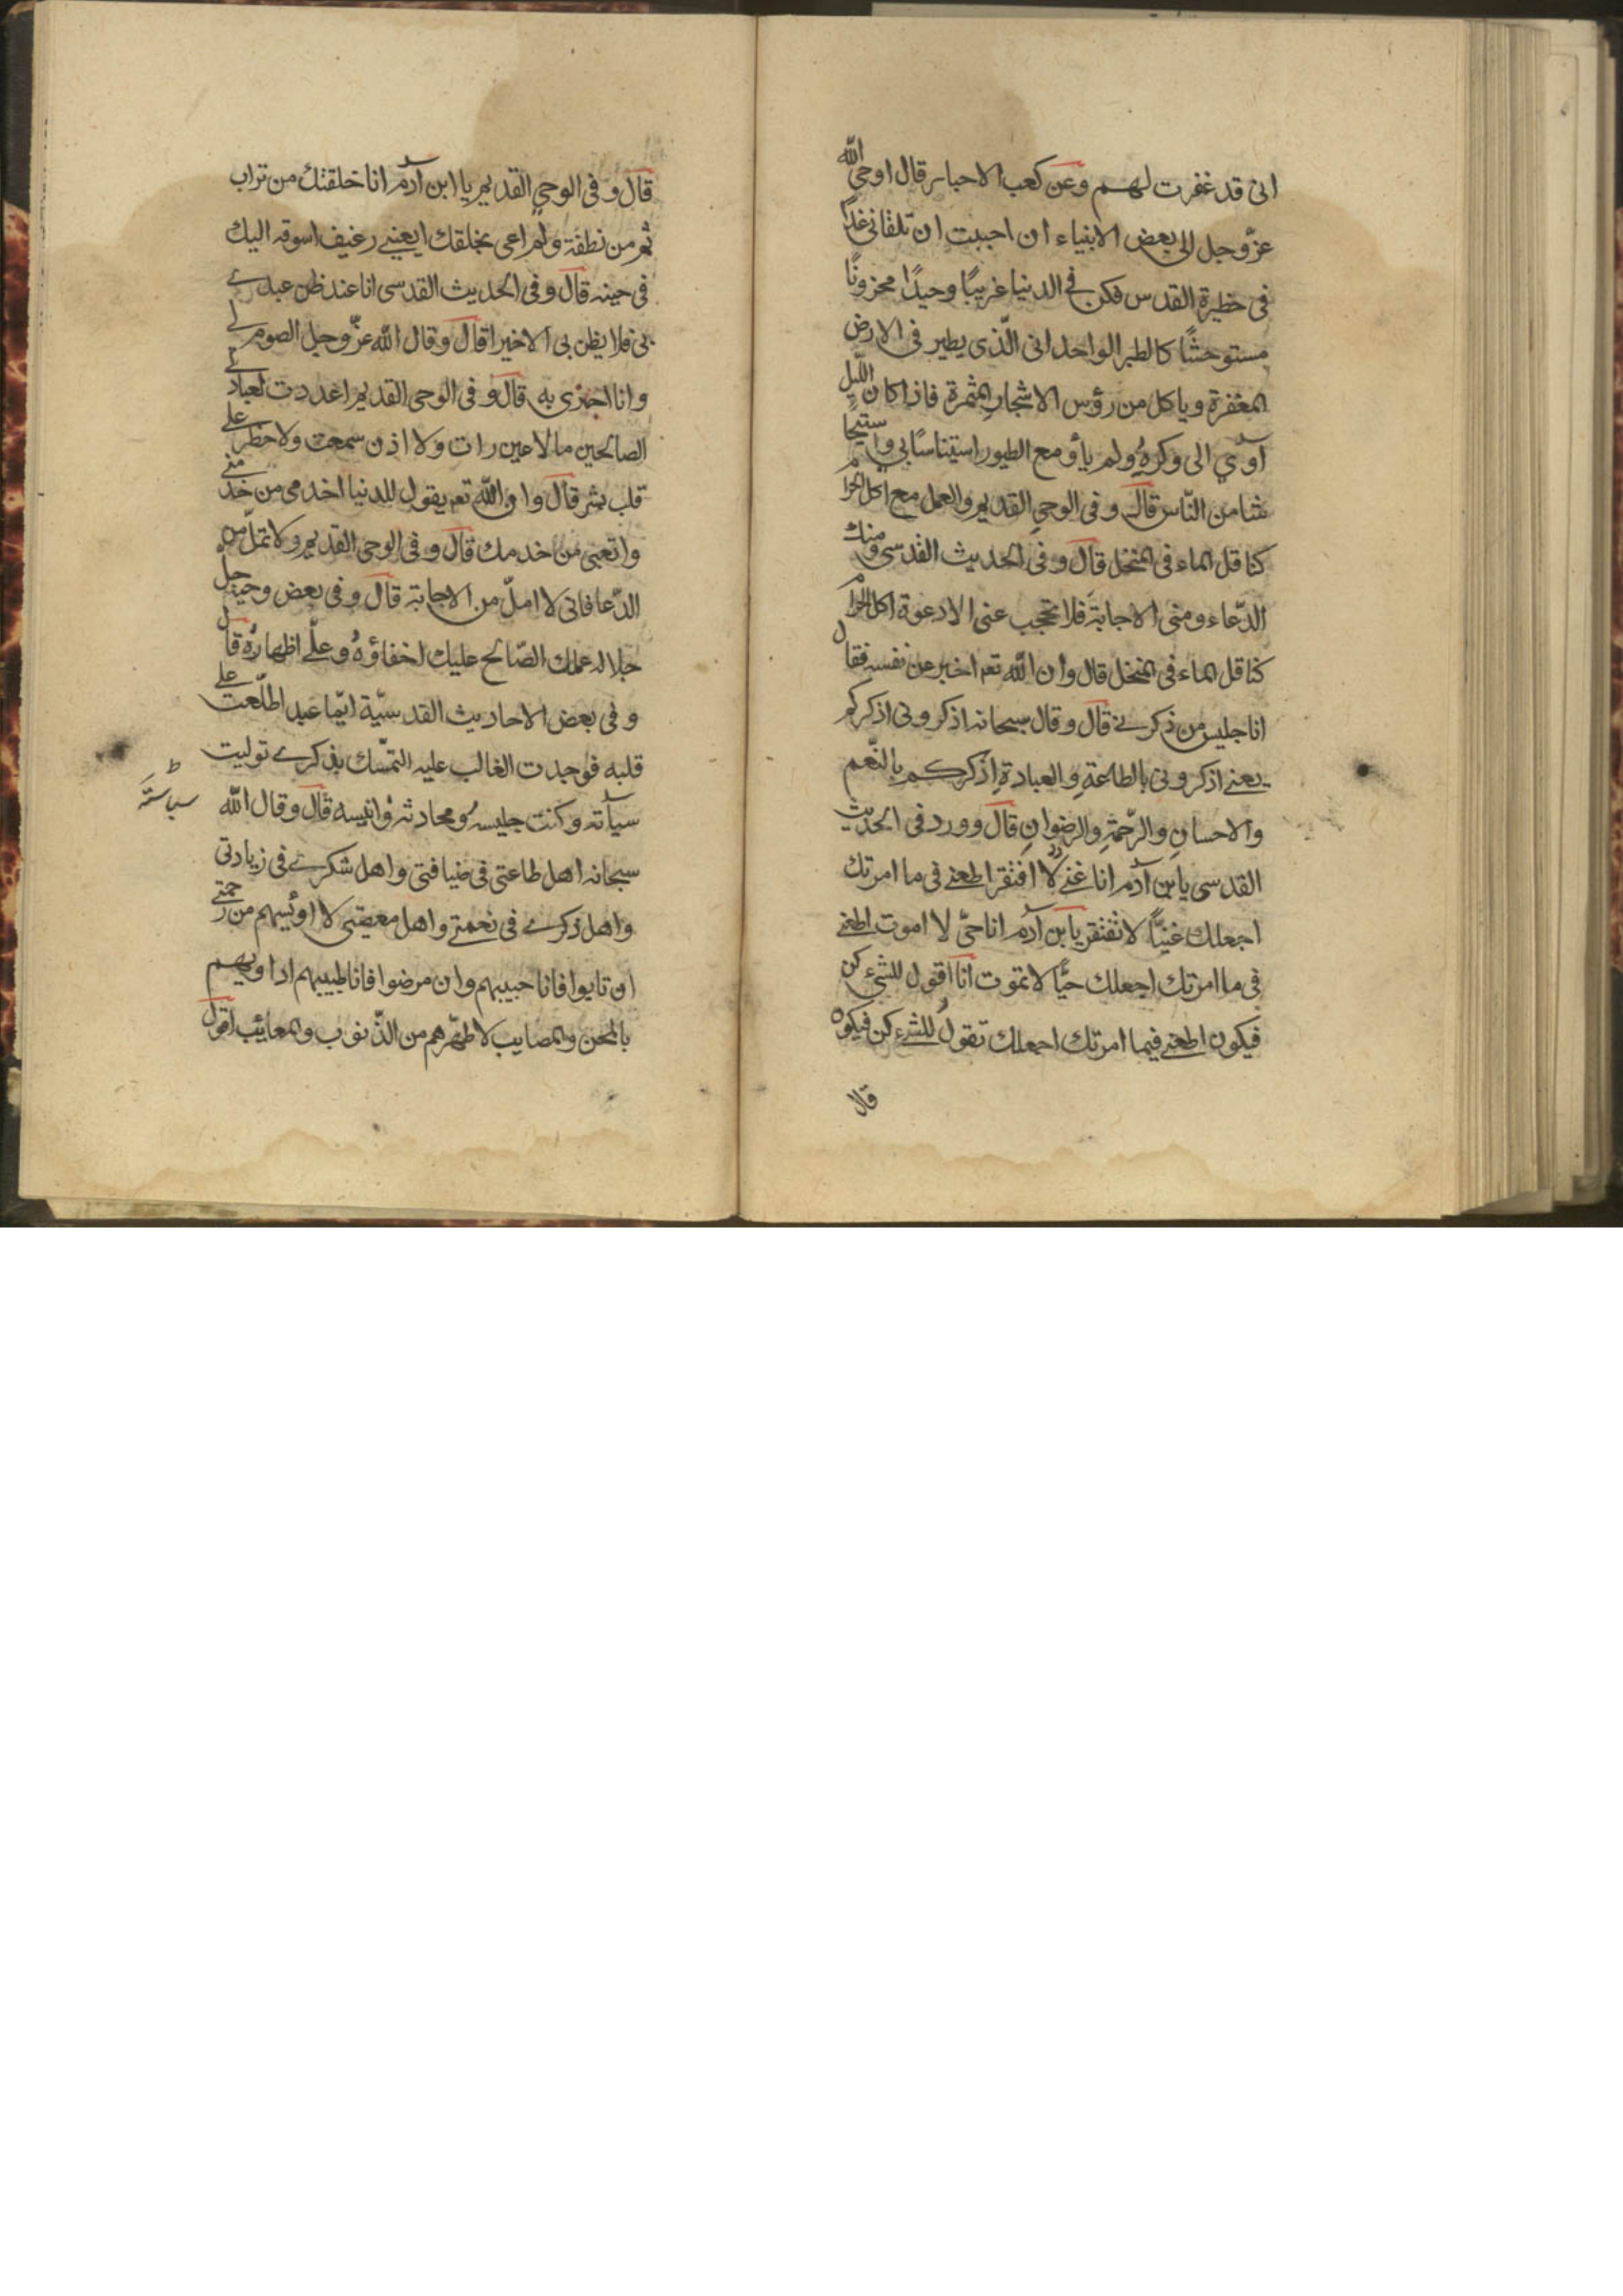 انى قد غفرت لهم وعن كعب الاحبار قال اوحى الله
عزّ وجل الى بعض الانبياء ان احببت ان تلقانى غدًا
فى حظيرة القدس فكن فى الدنيا غريبًا وحيدًا محزونًا
مستوحشًا كالطير الواحدانى الّذى يطير فى الارض
المغفرة وياكل من رؤس الاشجار المثمرة فاذا كان اللّيل
آوي الى وكره ولم ياؤ مع الطيور استيناسًا بى واستيحا
شا من النّاس قال وفى الوحي القديم والعمل مع اكل الحرام
كناقل الماء فى المنخل قال وفى الحديث القدسى ومنك
الدّعاء ومنى الاجابة فلا تحجب عنى الا دعوة اكل الحرام
كناقل الماء فى المنخل قال وان الله تعم اخبر عن نفسه فقال
انا جليس من ذكرنے قال وقال سبحانه اذكرونى اذكركم
يعنے اذكرونى بالطاعةِ والعبادةِ اذكركم بالنّعم
والاحسانِ والرّحمةِ والرضوانِ قال وورد فى الحديث
القدسى يابن آدم انا غنے لا افتقر اطعنے فى ما امرتك
اجعلك غنيًّا لا تفتقر يابن آدم انا حىّ لا اموت اطعنے
فى ما امرتك اجعلك حيًّا لا تموت انا اقول للشئ كن
فيكون اطعنے فيما امرتك اجعلك تقولُ للشئ كن فيكون
قال
قال وفى الوحي القديم يا ابن آدم انا خلقتك من تراب
ثم من نطفة ولم اعى بخلقك ايعينے رغيف اسوقه اليك
فى حينه قال وفى الحديث القدسى انا عند ظن عبدے
بى فلا يظن بى الا خيرا قال وقال الله عزّ وجل الصوم لے
وانا اجزى به قال وفى الوحى القديم اعددت لعبادے
الصالحين ما لا عين رات ولا اذن سمعت ولا خطر علے
قلب بشر قال وان الله تعم يقول للدنيا اخدمى من خدمنے
واتعبى من خدمك قال وفى الوحى القديم ولا تملّ من
الدّعا فانى لا املّ من الاجابة قال وفى بعض وحيه جل
جلاله عملك الصّالح عليك اخفاؤهُ وعلّے اظهارُه قال
وفى بعض الاحاديث القدسيّة ايّما عبد اطلّعت علے
قلبه فوجدت الغالب عليه التمّسك بذكرے توليت
سياٰته وكنت جليسهُ ومحادثه وانيسه قال وقال الله
سياسته ط
سبحانه اهل طاعتى فى ضيافتى واهل شكرے فى زيادتى
واهل ذكرے فى نعمتے واهل معصيتى لا اوئيسهم من رحمتے
ان تابوا فانا حبيبهم وان مرضوا فانا طبيبهم اداويهم
بالمحن والمصايب لاطهّرهم من الذّنوب والمعائب اقول